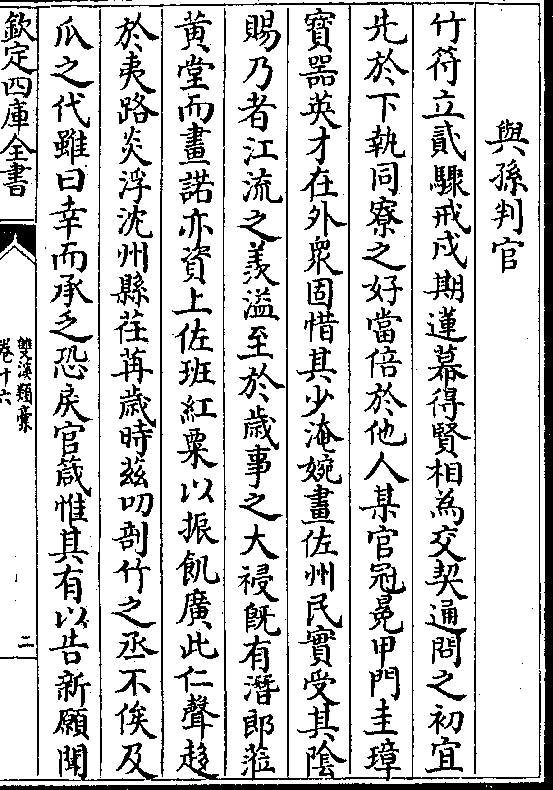 與孫判官
竹符立貳驟戒戍期蓮幕得賢相為交契通問之初宜
先於下執同寮之好當倍於他人某官冠冕甲門圭璋
寶器英才在外衆固惜其少淹婉畫佐州民實受其陰
賜乃者江流之羨溢至於歳事之大祲既有潛郎涖
黄堂而畫諾亦資上佐班紅粟以振飢廣此仁聲趍
於夷路炎浮沈州縣荏苒歳時兹叨剖竹之丞不俟及
瓜之代雖曰幸而承乏恐戾官箴惟其有以告新願聞
欽定四庫全書
雙溪類藁
卷十六
二